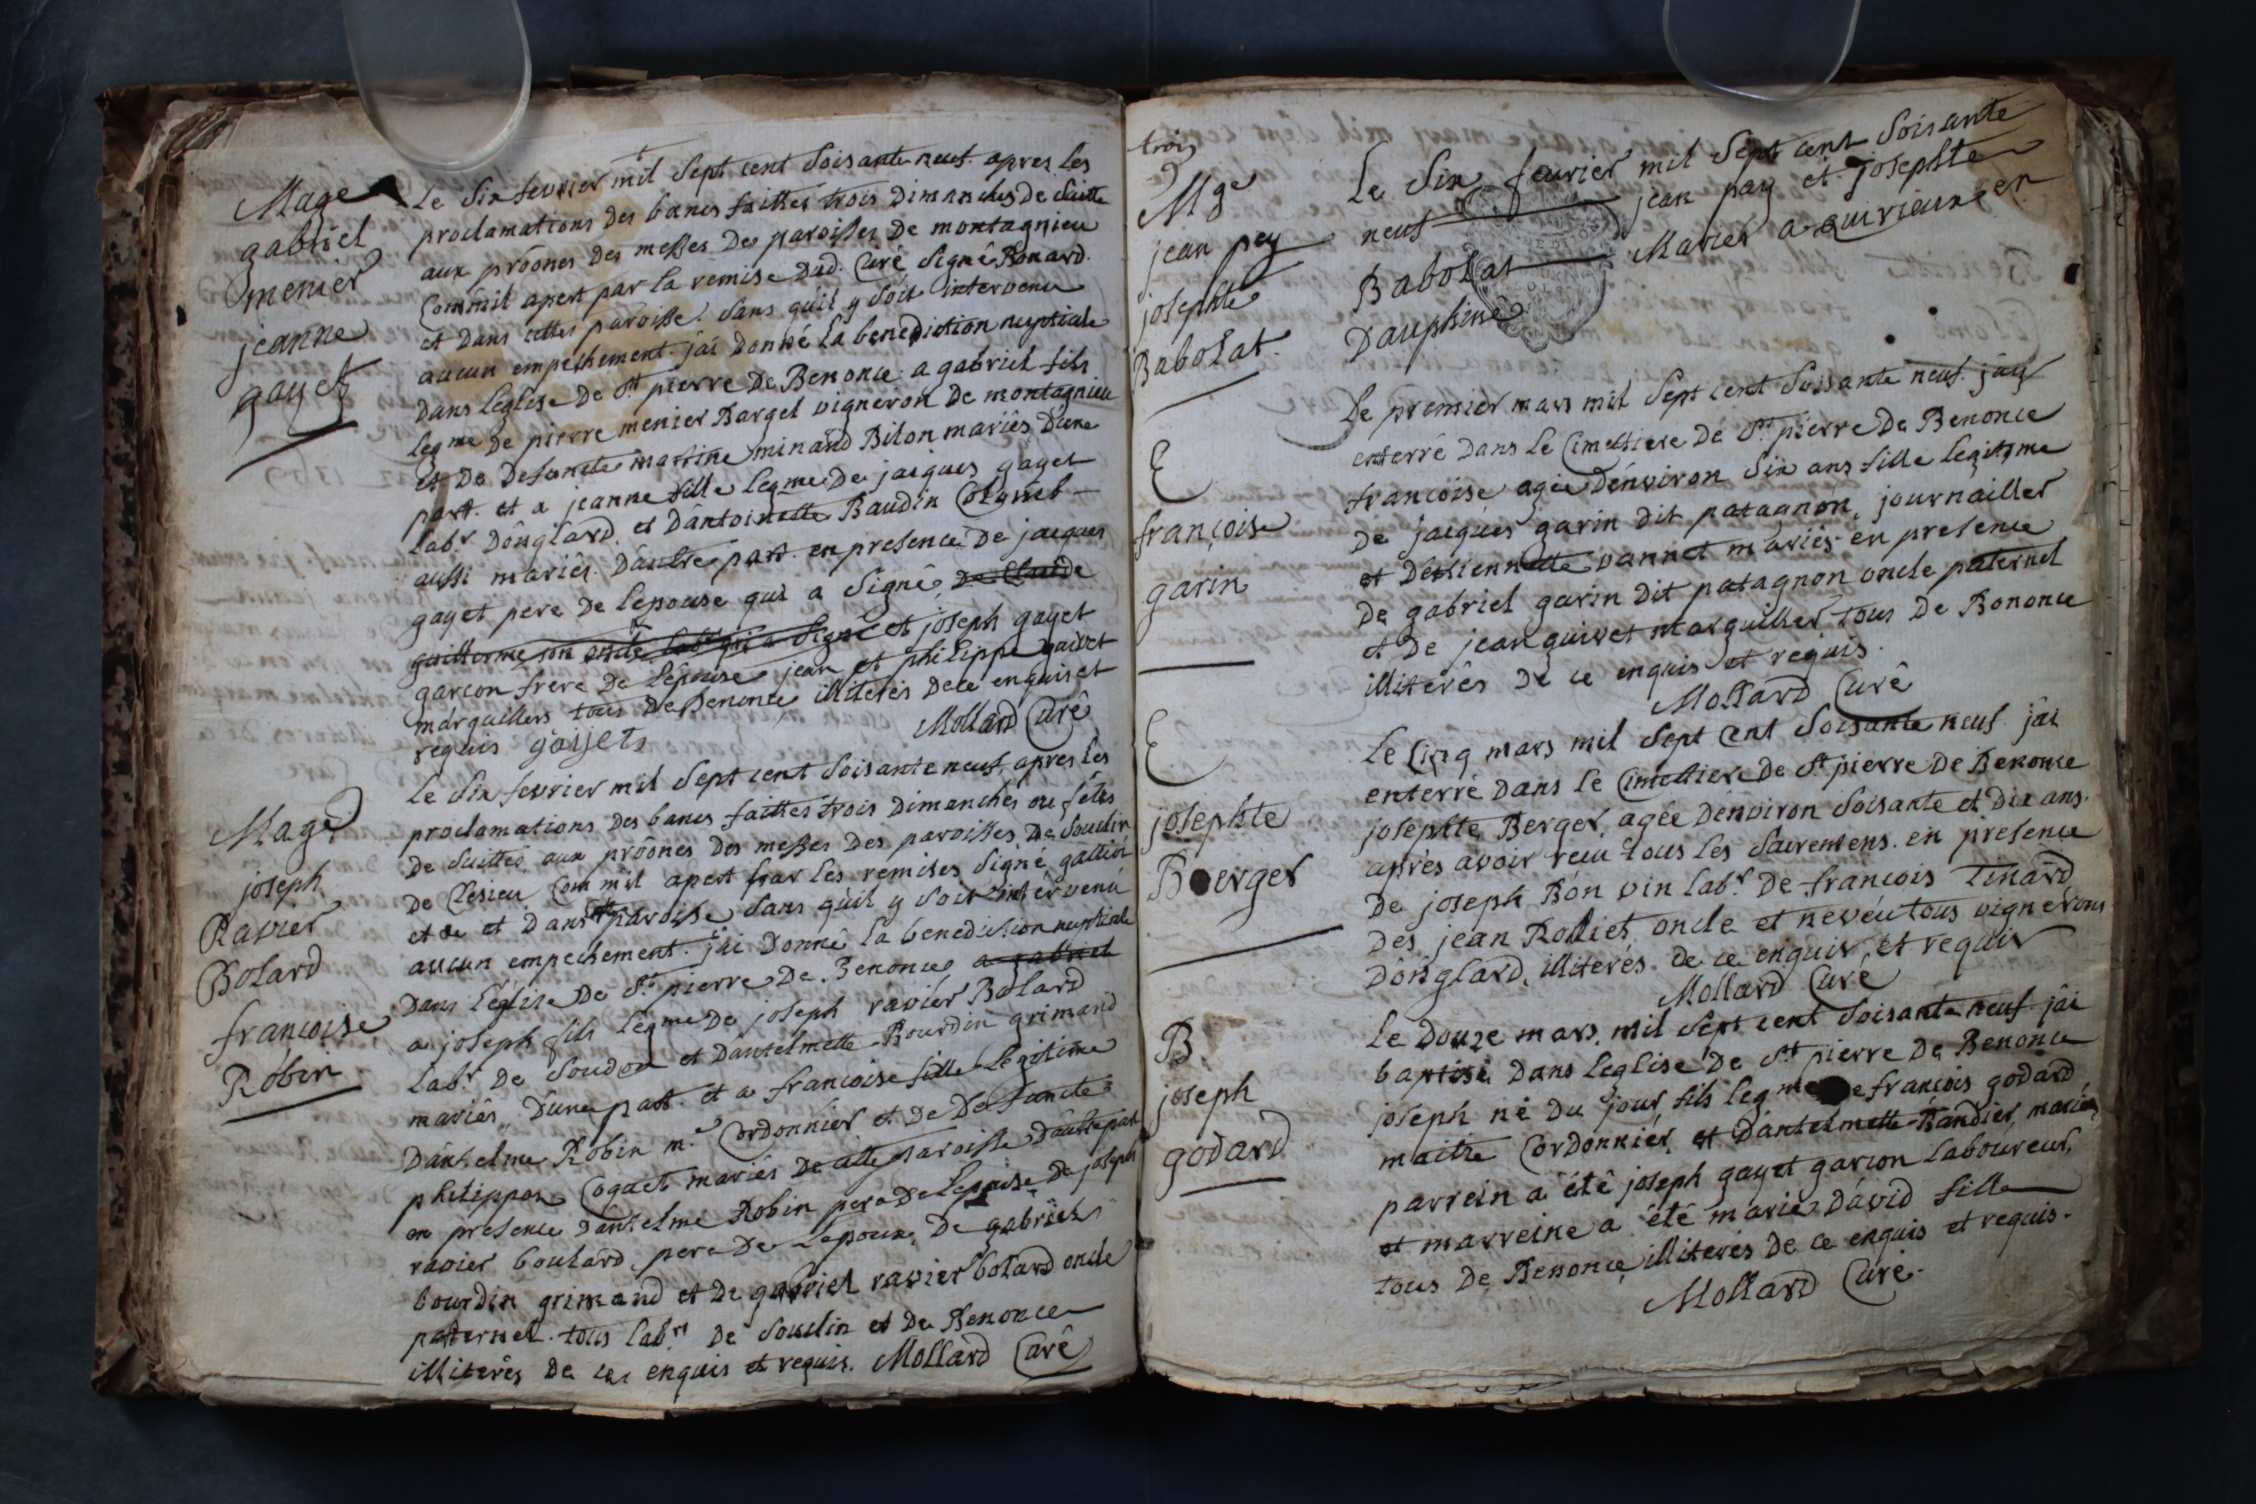 Mage
gabriel
menier
jeanne
gayet
Le Six fevrier mil Sept cent Soisante neuf. apres les
proclamations des bancs faittes trois Dimanches de Suitte
aux prôones des messes des paroisses De montagnieu
Commil apert par la remise Dud. Curé Signé Bonard.
et Dans cettes paroisse. Sans qu'il y Soit intervenu
aucun empechement. jái Donné la benediction nuptiale
Dans Leglise de St pierre De Benonce. a gabriel fils
legme De pierre menier Bargel vigneron De montagnieu
et De Defuncte martine minand Biton mariés Dúne
part. et a jeanne fille legme De jaiques gayet
labr. Dónglard. et Dántoinette Baudin
aussi mariés. Dáutre part. en presence De jaiques
gayet pere De lepouse qui a Signé, De Claude
guillerme son oncle labr qui a Signé et joseph gayet
garcon frere De Lépouse jean et philippe guivet
márguillers tous De Benonce, illiterés De ce enquis et
requis gaijets Mollard Curê
Mage
joseph
Ravier
Bolard
francoise
Robin
le Six fevrier mil Sept cent Soisante neuf. apres les
proclamations des bancs faittes trois Dimanches ou fétes
De Suittes aux prôones Des messes Des paroisses De Souclin
De Clesieu Commil apert par les remises Signé gallion
et De et Dans paroisse Sans qu'il y Soit intérvenu
aucun empechement. jái Donné la benediction nuptiale
Dans l'église De St. pierre De Benonce, a gabriel
a joseph fils legme De joseph ravier Bolard
labr. De Soudon et Dantelmette Bourdin grimand
mariés, Dúne part. et a francoise fille Legitime
Dántelme Robin m.e Cordonnier et De Defuncte
philippon Coquet mariés De cette paroisse Dáutre part
en presence Dántelme Robin pere De Lepouse De joseph
ravier boulard pere De Lépoux, De gabriel
bourdin grimand et De gabriel ravier bolard oncle
paternel. tous labrs De Souclin et De Benonce
illiterés De ce enquis et requis. Mollard Curê
trois
Mge
jean pey
josephte
Babolat.
Le Six fevrier mil Sept cent Soisante
neuf jean pay et josephte
Babolat Mariés a quirieux en
Dauphiné
E
françoise
garin
Le premier mars mil Sept cent Soisante neuf. jáy
enterré Dans Le Cimettiere De St. pierre De Benonce
francoise agée Dénviron Six ans fille legitime
De jacques garin Dit patagnon, journailler
et Déstiennette vannet mariés. en presence
De gabriel garin Dit patagnon oncle paternel
et De jean guivet marguiller tous De Bononce
illiterês De ce enquis et requis.
Mollard Curê
E
josephte
Berger
Le Cinq mars mil Sept Cent Soisante neuf. jái
enterré Dans Le Cimettiere De St pierre De Benonce
josephte Berger, agée Dénviron Soisante et Dix ans.
après avoir recu tous les Sacremens. en presence
De joseph Bón vin labr. De francois Tinard
Des jean Rolliet oncle et nevéu tous vignerons
Dónglard, illiterés. de ce enquis et requis
Mollard Curé
B
joseph
godard
Le Douze mars. mil Sept cent Soisante neuf. jái
baptisé Dans Leglise De St pierre De Benonce
joseph né Du jour, fils legme De francois godard
maitre Cordonnier, et Dántelmette Randier, mariés
parrein a étê joseph gayet garcon laboureur,
et marreine a été marie Dávid fille
tous De Benonce illiterés De ce enquis et requis.
Mollard Curé.